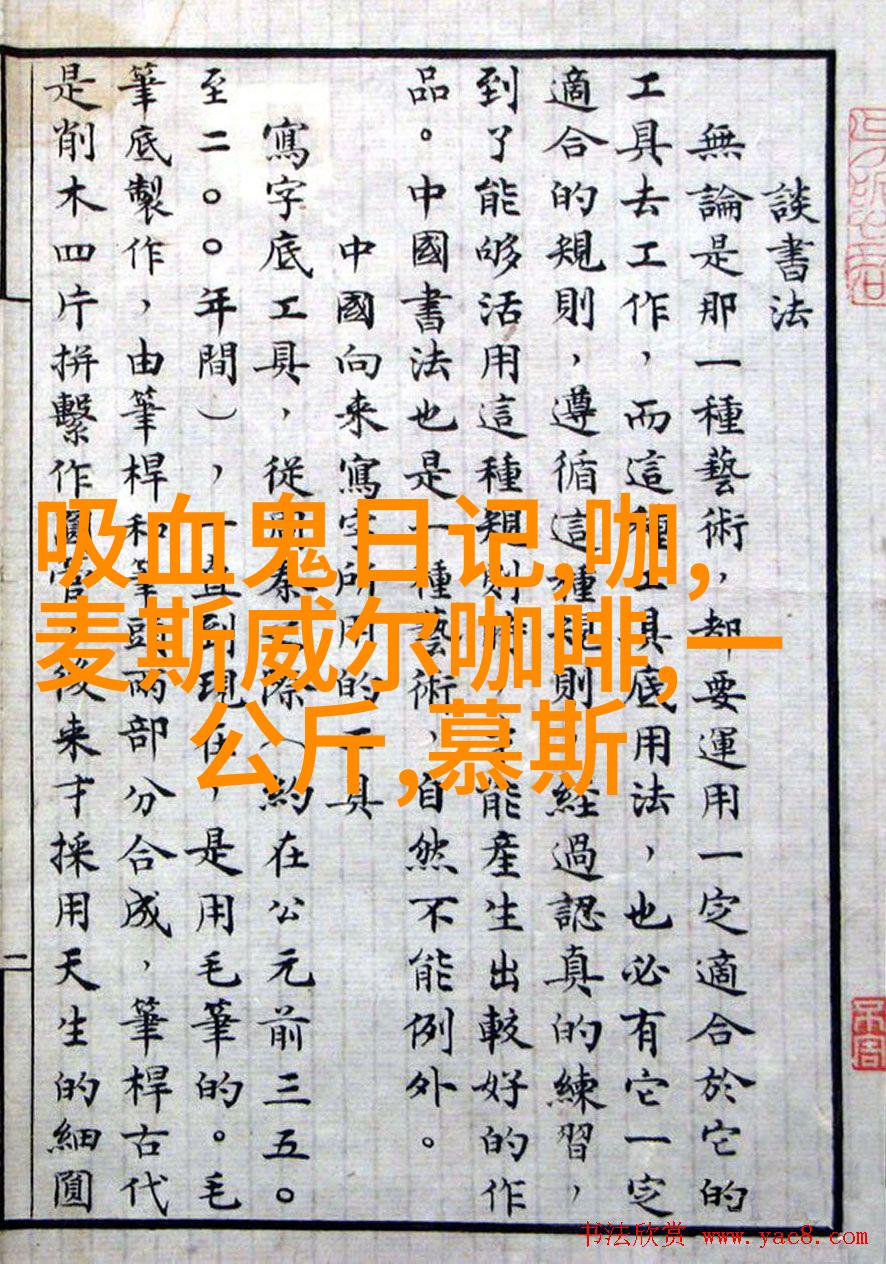 談書法
無論是那一種藝術，都要運用一定適合於它的
工具去工作，而這種工具底用法，也必有它一定
適合的規則，遵循這種規則，經過認真的練習，
到了能够活用這種規則能產生出較好的作
品。中國書法也是一種藝術，自然不能例外。
中國向来寫字所用的工具
寫字底工具，從秦際（約在公元前三五〇
至二〇〇年間），一直到現在，是用毛筆的。毛
筆底製作，由筆桿和筆頭兩部分合成，筆桿古代
是削木四片拼繫作圓管後来才採用天生的細圓
二
吸血鬼日记,咖,
麦斯威尔咖啡,一
公斤 ,慕斯
书法欣赏 www.yac8.com